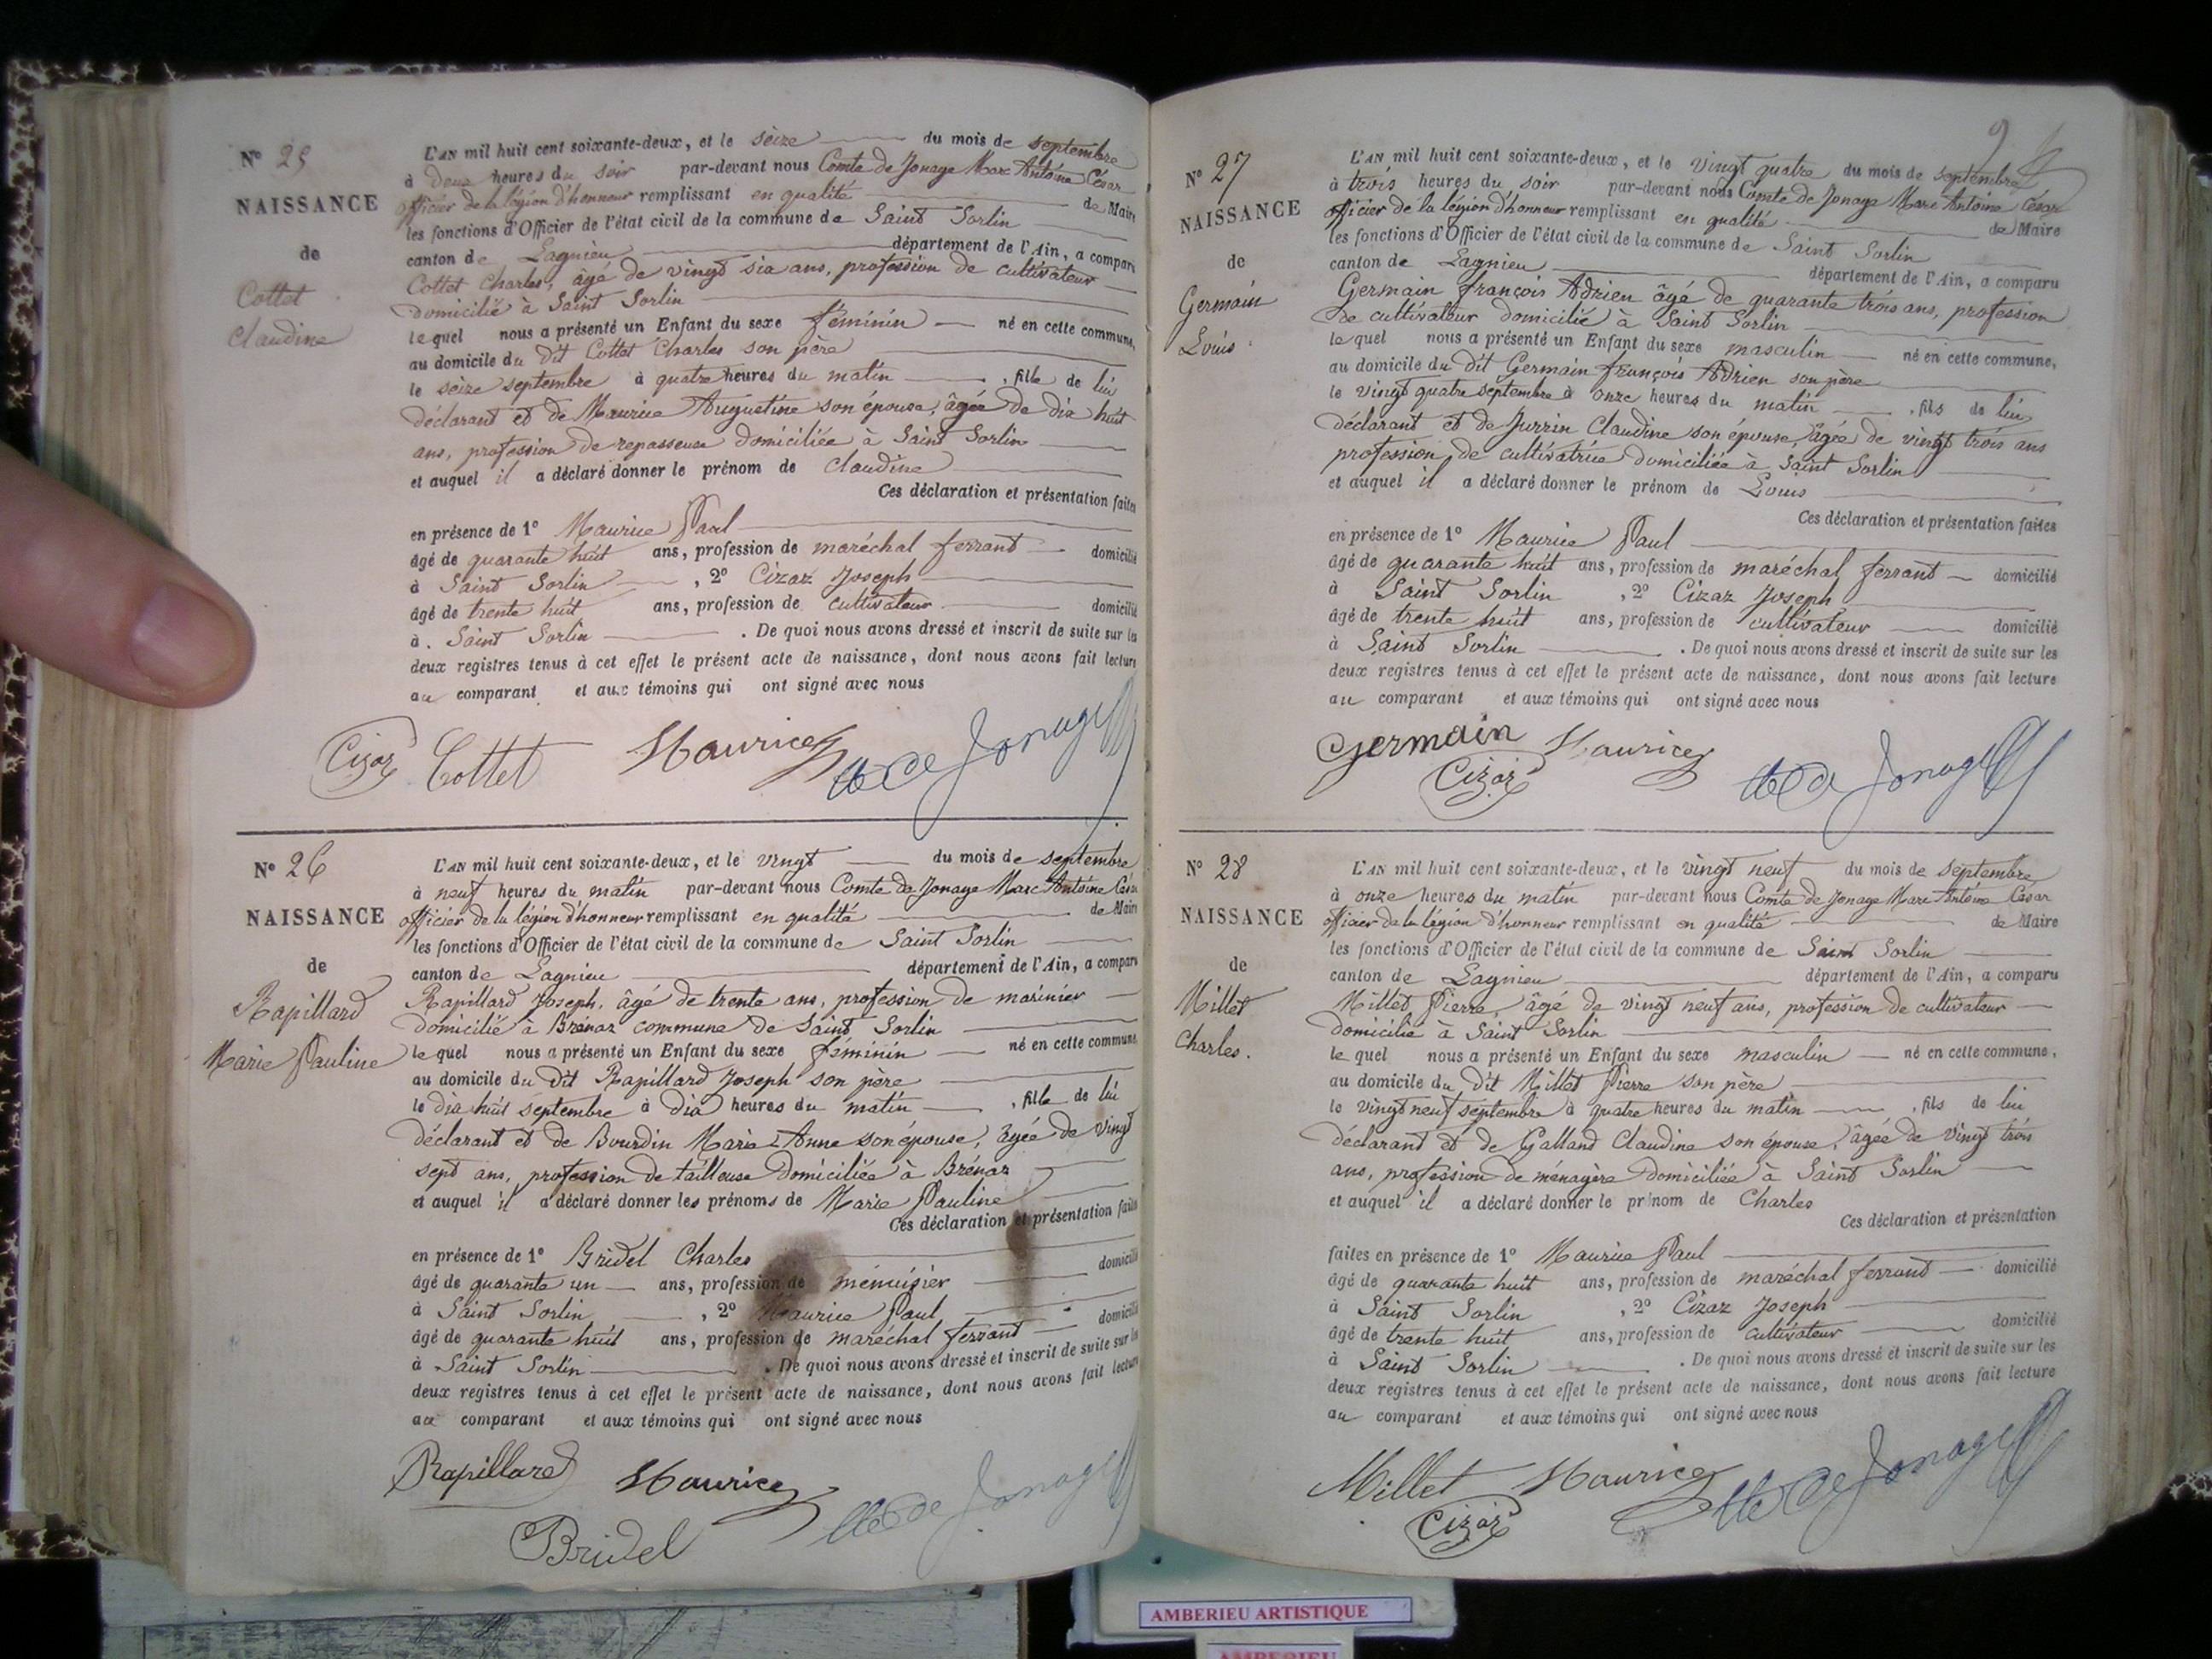 N° 25
NAISSANCE
de
Cottet
Claudine
L'AN mil huit cent soixante-deux, et le seize du mois de septembre
à deux heures du soir par-devant nous Comte de Jonage Marc Antoine César
officier de la légion d'honneur remplissant en qualité de Maire
les fonctions d'Officier de l'état civil de la commune de Saint Sorlin
canton de Lagnieu département de l'Ain, a comparu
Cottet Charles, âgé de vingt six ans, profession de cultivateur
domicilié à Saint Sorlin
lequel nous a présenté un Enfant du sexe féminin né en cette commune,
au domicile du dit Cottet Charles son père
le seize septembre à quatre heures du matin, fille de lui
déclarant et de Maurice Augustine son épouse, âgée de dix huit
ans, profession de repasseuse domiciliée à Saint Sorlin
et auquel il a déclaré donner le prénom de Claudine
Ces déclaration et présentation faites
en présence de 1° Maurice Paul
âgé de quarante huit ans, profession de maréchal ferrant domicilié
à Saint Sorlin, 2° Cizaz Joseph
âgé de trente huit ans, profession de cultivateur domicilié
à Saint Sorlin. De quoi nous avons dressé et inscrit de suite sur les
deux registres tenus à cet effet le présent acte de naissance, dont nous avons fait lecture
au comparant et aux témoins qui ont signé avec nous
Cizaz Cottet Maurice de Jonage
N° 26
NAISSANCE
de
Rapillard
Marie Pauline
L'AN mil huit cent soixante-deux, et le vingt du mois de septembre
à neuf heures du matin par-devant nous Comte de Jonage Marc Antoine César
officier de la légion d'honneur remplissant en qualité de Maire
les fonctions d'Officier de l'état civil de la commune de Saint Sorlin
canton de Lagnieu département de l'Ain, a comparu
Rapillard Joseph, âgé de trente ans, profession de marinier
domicilié à Brénaz commune de Saint Sorlin
lequel nous a présenté un Enfant du sexe féminin né en cette commune,
au domicile du dit Rapillard Joseph son père
le dix huit septembre à dix heures du matin, fille de lui
déclarant et de Bourdin Marie Anne son épouse, âgée de vingt
sept ans, profession de tailleuse domiciliée à Brénaz
et auquel il a déclaré donner les prénoms de Marie Pauline
Ces déclaration et présentation faites
en présence de 1° Bridel Charles
âgé de quarante un ans, profession de ménuisier domicilié
à Saint Sorlin, 2° Maurice Paul
âgé de quarante huit ans, profession de maréchal ferrant domicilié
à Saint Sorlin. De quoi nous avons dressé et inscrit de suite sur les
deux registres tenus à cet effet le présent acte de naissance, dont nous avons fait lecture
au comparant et aux témoins qui ont signé avec nous
Rapillard Maurice de Jonage
Bridel
9
N° 27
NAISSANCE
de
Germain
Louis
L'AN mil huit cent soixante-deux, et le vingt quatre du mois de septembre
à trois heures du soir par-devant nous Comte de Jonage Marc Antoine César
officier de la légion d'honneur remplissant en qualité de Maire
les fonctions d'Officier de l'état civil de la commune de Saint Sorlin
canton de Lagnieu département de l'Ain, a comparu
Germain françois Adrien âgé de quarante trois ans, profession
de cultivateur domicilié à Saint Sorlin
lequel nous a présenté un Enfant du sexe masculin né en cette commune,
au domicile du dit Germain françois Adrien son père
le vingt quatre septembre à onze heures du matin, fils de lui
déclarant et de Jurrin Claudine son épouse, âgée de vingt trois ans
profession de cultivatrice domiciliée à Saint Sorlin
et auquel il a déclaré donner le prénom de Louis
Ces déclaration et présentation faites
en présence de 1° Maurice Paul
âgé de quarante huit ans, profession de maréchal ferrant domicilié
à Saint Sorlin, 2° Cizaz Joseph
âgé de trente huit ans, profession de cultivateur domicilié
à Saint Sorlin. De quoi nous avons dressé et inscrit de suite sur les
deux registres tenus à cet effet le présent acte de naissance, dont nous avons fait lecture
au comparant et aux témoins qui ont signé avec nous
Germain Maurice
Cizaz de Jonage
N° 28
NAISSANCE
de
Millet
Charles.
L'AN mil huit cent soixante-deux, et le vingt neuf du mois de septembre
à onze heures du matin par-devant nous Comte de Jonage Marc Antoine César
officier de la légion d'honneur remplissant en qualité de Maire
les fonctions d'Officier de l'état civil de la commune de Saint Sorlin
canton de Lagnieu département de l'Ain, a comparu
Millet Pierre, âgé de vingt neuf ans, profession de cultivateur
domicilié à Saint Sorlin
lequel nous a présenté un Enfant du sexe masculin né en cette commune,
au domicile du dit Millet Pierre son père
le vingt neuf septembre à quatre heures du matin, fils de lui
déclarant et de Galland Claudine son épouse, âgée de vingt trois
ans, profession de ménagère domiciliée à Saint Sorlin
et auquel il a déclaré donner le prénom de Charles
Ces déclaration et présentation
faites en présence de 1° Maurice Paul
âgé de quarante huit ans, profession de maréchal ferrant domicilié
à Saint Sorlin, 2° Cizaz Joseph
âgé de trente huit ans, profession de cultivateur domicilié
à Saint Sorlin. De quoi nous avons dressé et inscrit de suite sur les
deux registres tenus à cet effet le présent acte de naissance, dont nous avons fait lecture
au comparant et aux témoins qui ont signé avec nous
Millet Maurice de Jonage
Cizaz
AMBERIEU ARTISTIQUE
AMBERIEU